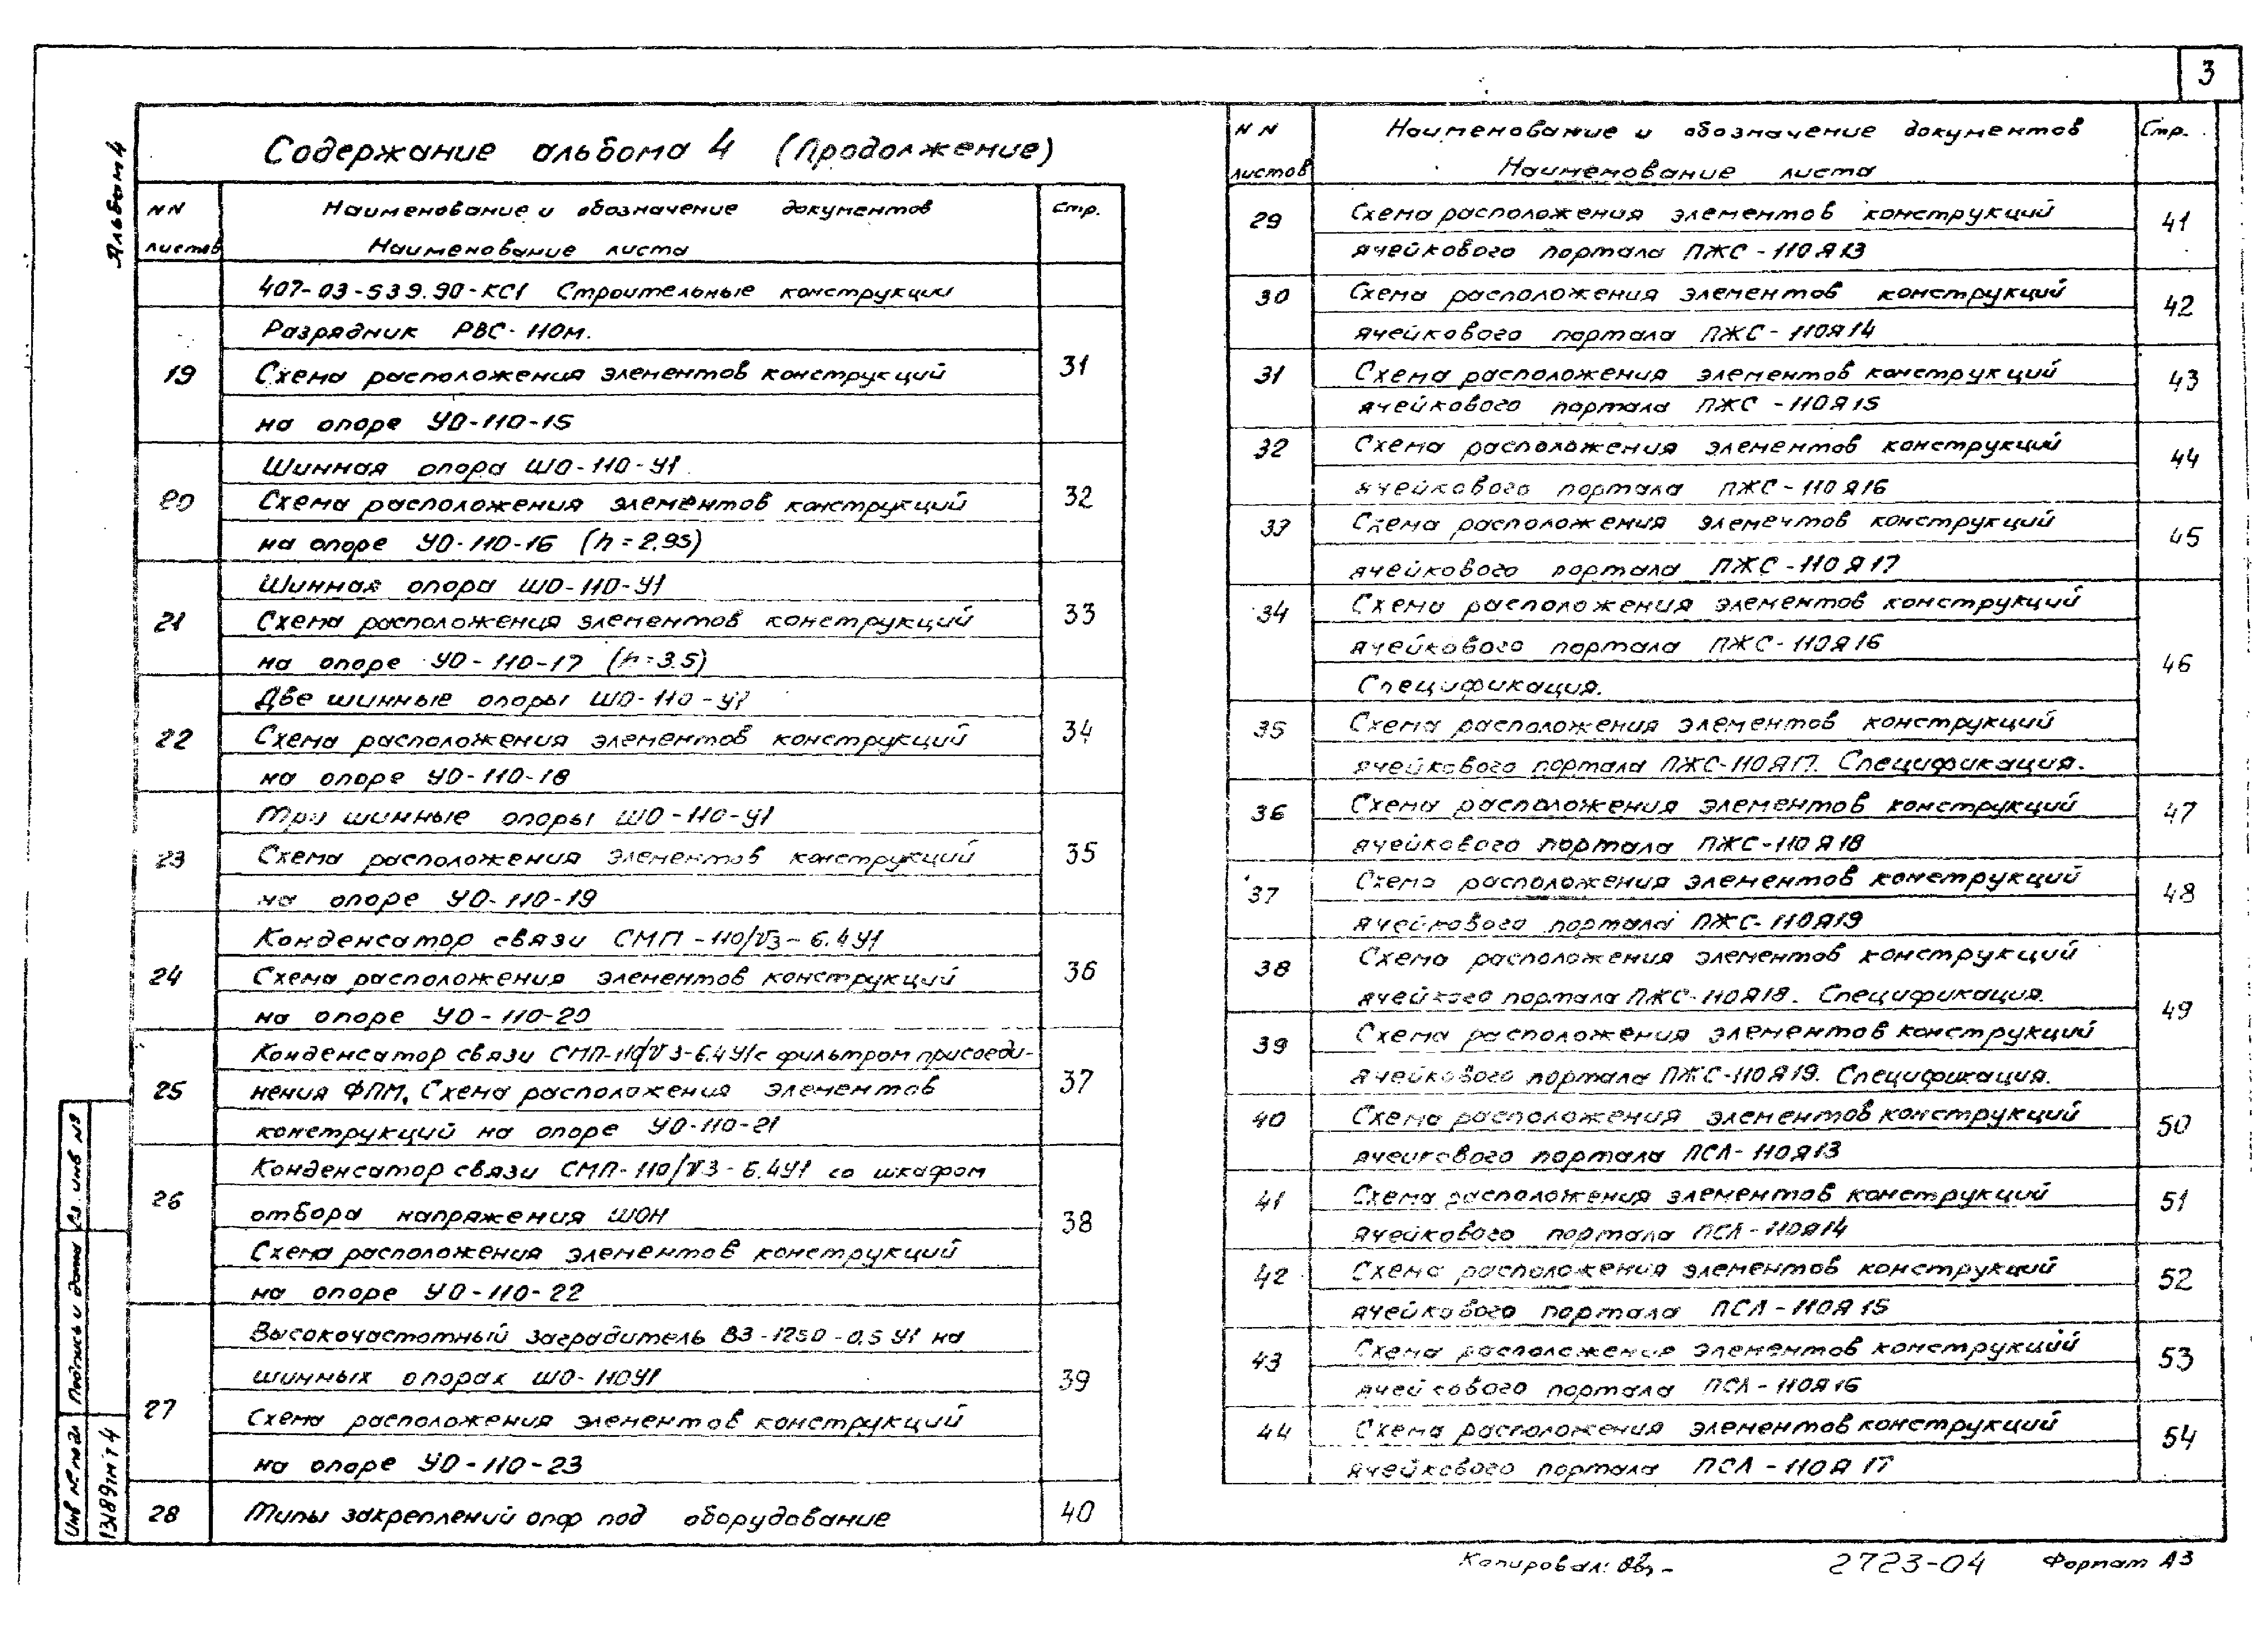 3
Альбом 4
Содержание альбома 4 (Продолжение)
NN листов
Наименование и обозначение документов
Наименование листа
Стр.
407-03-539.90-КС1 Строительные конструкции
19
Разрядник РВС-110м.
Схема расположения элементов конструкций
на опоре УО-110-15
31
20
Шинная опора ШО-110-У1
Схема расположения элементов конструкций
на опоре УО-110-16 (h=2.95)
32
21
Шинная опора ШО-110-У1
Схема расположения элементов конструкций
на опоре УО-110-17 (h=3.5)
33
22
Две шинные опоры ШО-110-У1
Схема расположения элементов конструкций
на опоре УО-110-18
34
23
Три шинные опоры ШО-110-У1
Схема расположения элементов конструкций
на опоре УО-110-19
35
24
Конденсатор связи СМП-110/√3-6.4У1
Схема расположения элементов конструкций
на опоре УО-110-20
36
25
Конденсатор связи СМП-110/√3-6.4У1 с фильтром присоеди-
нения ФПМ. Схема расположения элементов
конструкций на опоре УО-110-21
37
26
Конденсатор связи СМП-110/√3-6.4У1 со шкафом
отбора напряжения ШОН
Схема расположения элементов конструкций
на опоре УО-110-22
38
27
Высокочастотный заградитель ВЗ-1250-0.5 У1 на
шинных опорах ШО-110У1
Схема расположения элементов конструкций
на опоре УО-110-23
39
28
Типы закреплений опор под оборудование
40
NN листов
Наименование и обозначение документов
Наименование листа
Стр.
29
Схема расположения элементов конструкций
ячейкового портала ПЖС-110Я13
41
30
Схема расположения элементов конструкций
ячейкового портала ПЖС-110Я14
42
31
Схема расположения элементов конструкций
ячейкового портала ПЖС-110Я15
43
32
Схема расположения элементов конструкций
ячейкового портала ПЖС-110Я16
44
33
Схема расположения элементов конструкций
ячейкового портала ПЖС-110Я17
45
34
Схема расположения элементов конструкций
ячейкового портала ПЖС-110Я16
Спецификация.
46
35
Схема расположения элементов конструкций
ячейкового портала ПЖС-110Я17. Спецификация.
36
Схема расположения элементов конструкций
ячейкового портала ПЖС-110Я18
47
37
Схема расположения элементов конструкций
ячейкового портала ПЖС-110Я19
48
38
Схема расположения элементов конструкций
ячейкого портала ПЖС-110Я18. Спецификация.
49
39
Схема расположения элементов конструкций
ячейкового портала ПЖС-110Я19. Спецификация.
40
Схема расположения элементов конструкций
ячейкового портала ПСЛ-110Я13
50
41
Схема расположения элементов конструкций
ячейкового портала ПСЛ-110Я14
51
42
Схема расположения элементов конструкций
ячейкового портала ПСЛ-110Я15
52
43
Схема расположения элементов конструкций
ячейкового портала ПСЛ-110Я16
53
44
Схема расположения элементов конструкций
ячейкового портала ПСЛ-110Я17
54
Инв № подл
Подпись и дата
Вз инв №
Копировал:
2723-04
Формат А3